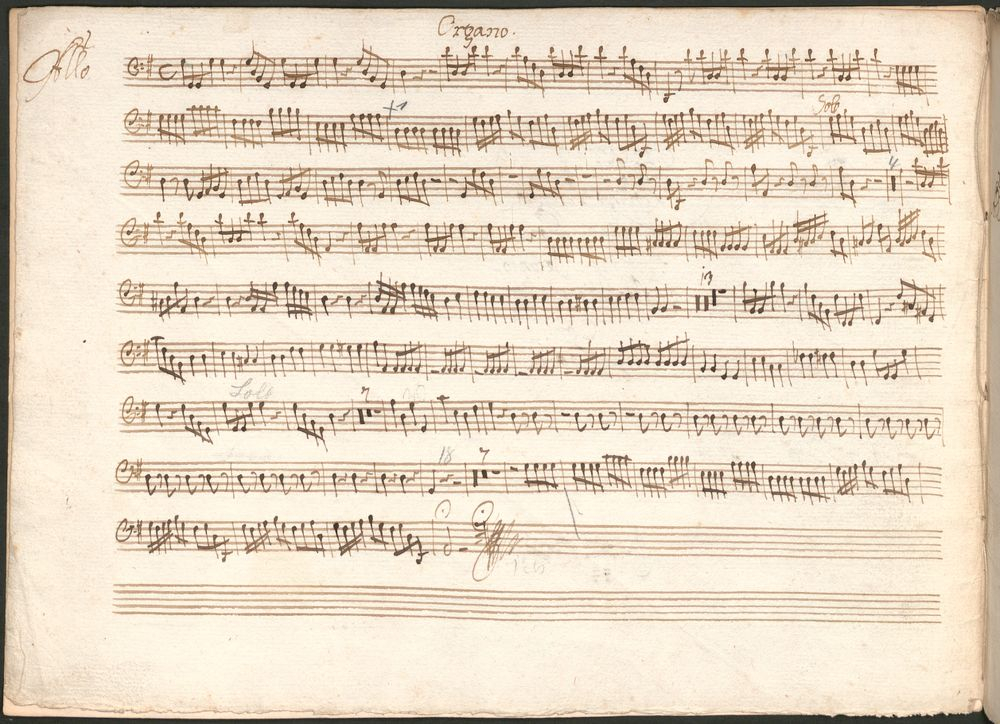 Organo.
Allo
Solo
4
13
Solo
7
18
7